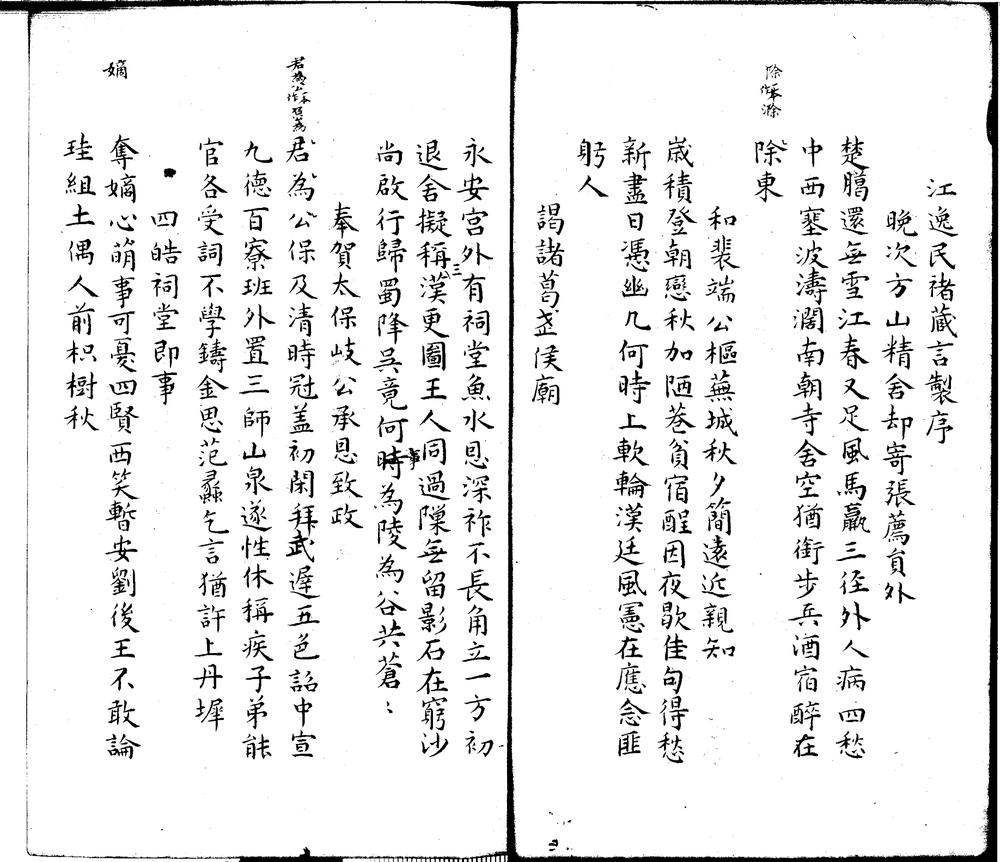 江逸民褚藏言製序
晚次方山精舍却寄張薦員外
楚臈還無雪江春又足風馬羸三徑外人病四愁
中西塞波濤濶南朝寺舍空猶銜步兵酒宿醉在
除東
除一本作滁
和裴端公樞蕪城秋夕簡遠近親知
歲積登朝戀秋加陋巷貧宿酲因夜歇佳句得愁
新盡日憑幽几何時上軟輪漢廷風憲在應念匪
躬人
謁諸葛武侯廟
永安宮外有祠堂魚水恩深祚不長角立一方初
退舍擬稱三漢更圖王人同過隟無留影石在窮沙
尚啟行歸蜀降吳竟何時事為陵為谷共蒼〻
奉賀太保岐公承恩致政
君為公保及清時冠盖初閑拜武遲五色詔中宣
九德百寮班外置三師山泉遂性休稱疾子弟能
官各受詞不學鑄金思范蠡乞言猶許上丹墀
四皓祠堂即事
奪嫡心萌事可憂四賢西笑暫安劉後王不敢論
珪組土偶人前枳樹秋
嫡